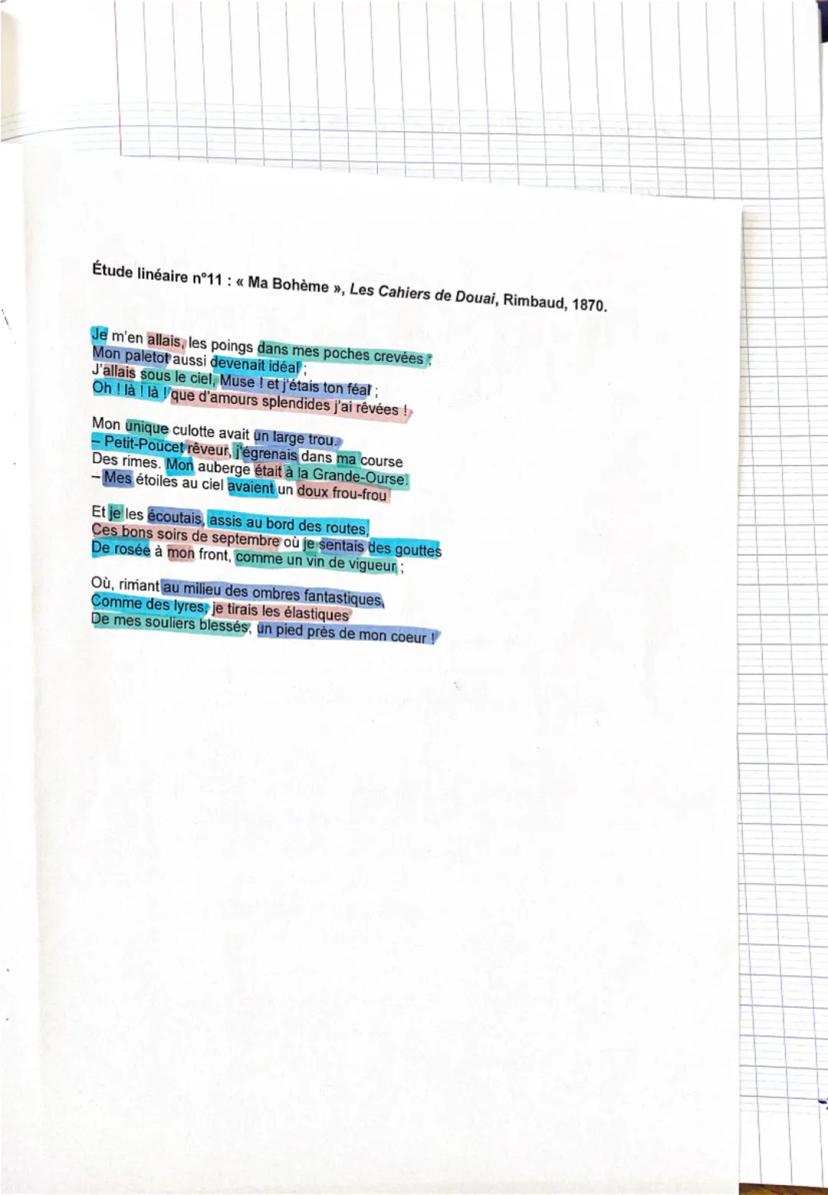 Étude linéaire n°11 : « Ma Bohème », Les Cahiers de Douai, Rimbaud, 1870.
Je m'en allais, les poings dans mes poches crevées ;
Mon paletot aussi devenait idéal ;
J'allais sous le ciel, Muse ! et j'étais ton féal ;
Oh ! là ! là ! que d'amours splendides j'ai rêvées !
Mon unique culotte avait un large trou.
– Petit-Poucet rêveur, j'égrenais dans ma course
Des rimes. Mon auberge était à la Grande-Ourse.
– Mes étoiles au ciel avaient un doux frou-frou
Et je les écoutais, assis au bord des routes,
Ces bons soirs de septembre où je sentais des gouttes
De rosée à mon front, comme un vin de vigueur ;
Où, rimant au milieu des ombres fantastiques,
Comme des lyres, je tirais les élastiques
De mes souliers blessés, un pied près de mon coeur !